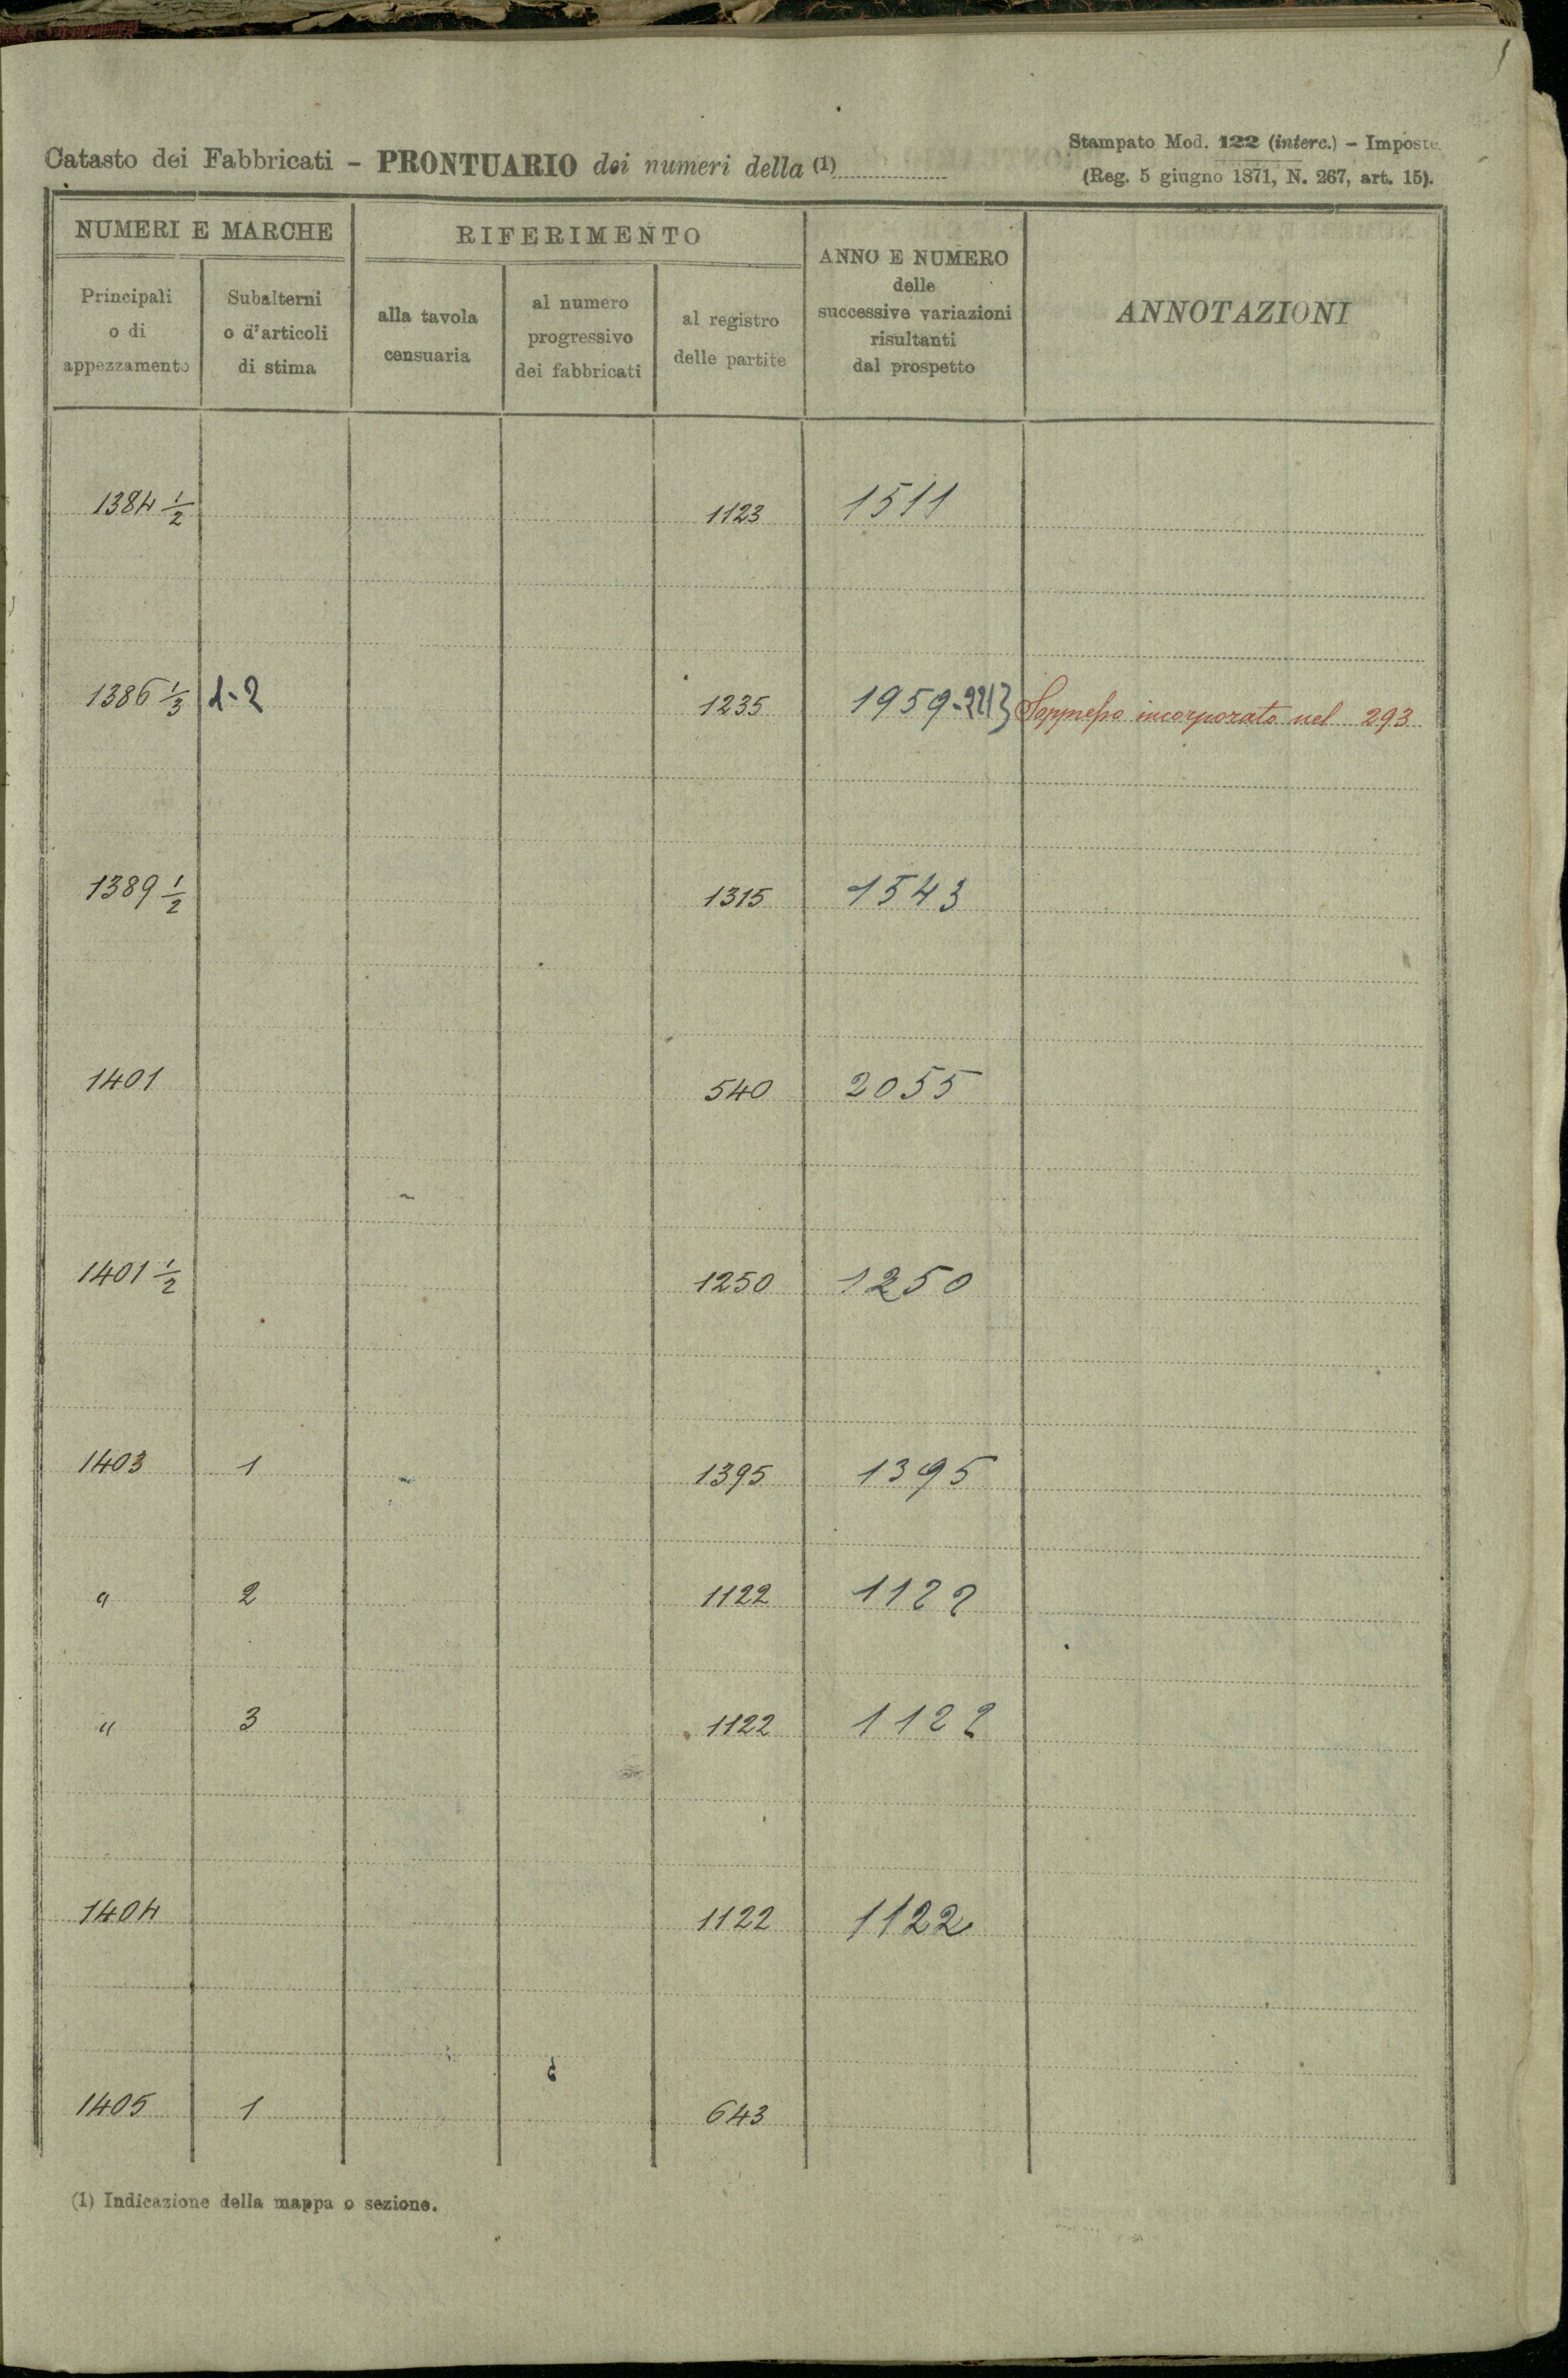 Stampato Mod. 122 (interc.) - Imposte.
Catasto dei Fabbricati - PRONTUARIO dei numeri della (1)
(Reg. 5 giugno 1871, N. 267, art. 15).
NUMERI E MARCHE
RIFERIMENTO
ANNO E NUMERO
delle
successive variazioni
risultanti
dal prospetto
ANNOTAZIONI
Principali
o di
appezzamento
Subalterni
o d'articoli
di stima
alla tavola
censuaria
al numero
progressivo
dei fabbricati
al registro
delle partite
1384 1/2 1123 1511
1386 1/3 1-2 1235 1959-2213 Soppresso incorporato nel 293
1389 1/2 1315 1543
1401 540 2055
1401 1/2 1250 1250
1403 1 1395 1395
" 2 1122 1122
" 3 1122 1122
1404 1122 1122
1405 1 643
(1) Indicazione della mappa o sezione.